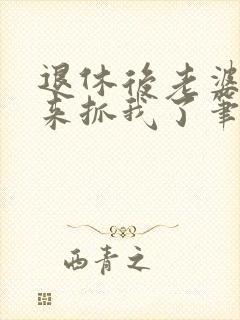 退休後老婆
来抓我了筆
西青之